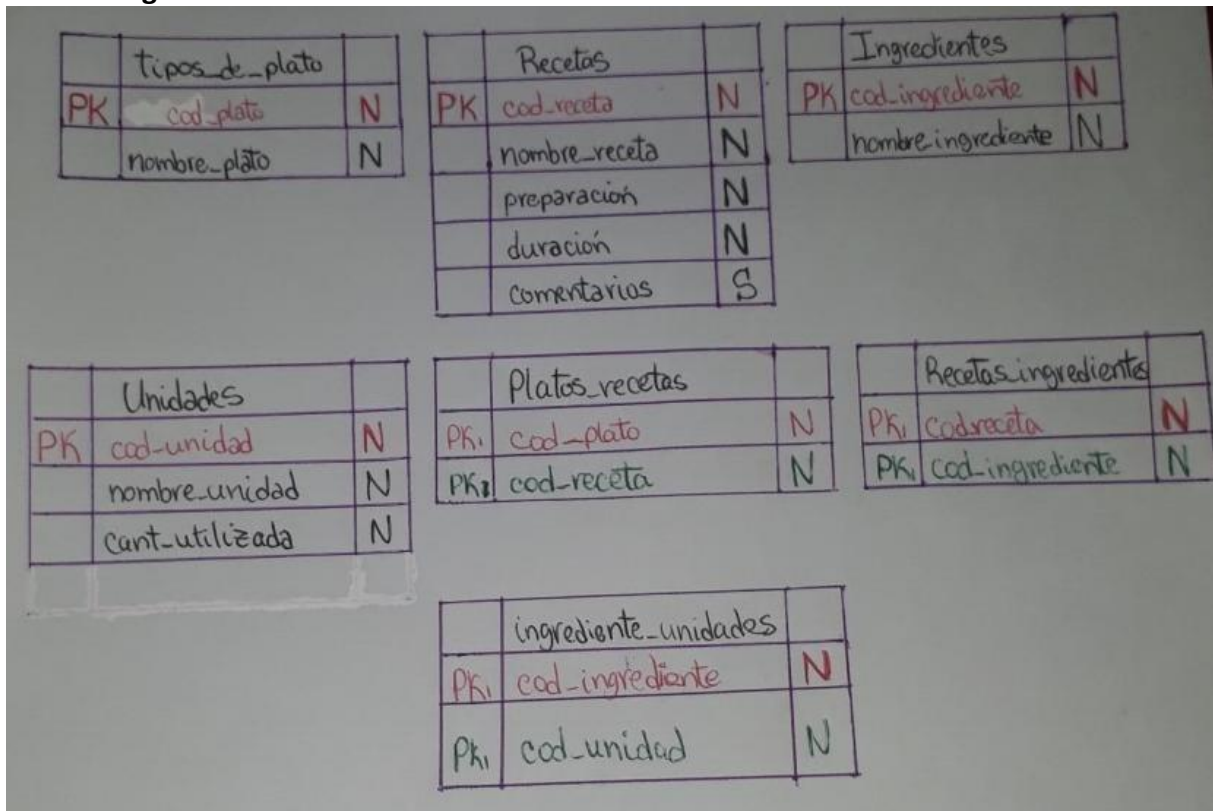 tipos_de_plato
PK cod_plato N
nombre_plato N
Recetas
PK cod_receta N
nombre_receta N
preparación N
duración N
comentarios S
Ingredientes
PK cod_ingrediente N
nombre_ingrediente N
Unidades
PK cod-unidad N
nombre_unidad N
cant_utilizada N
Platos_recetas
PK1 cod_plato N
PK1 cod_receta N
Recetas_ingredientes
PK1 cod_receta N
PK1 cod_ingrediente N
ingrediente_unidades
PK1 cod_ingrediente N
PK1 cod_unidad N